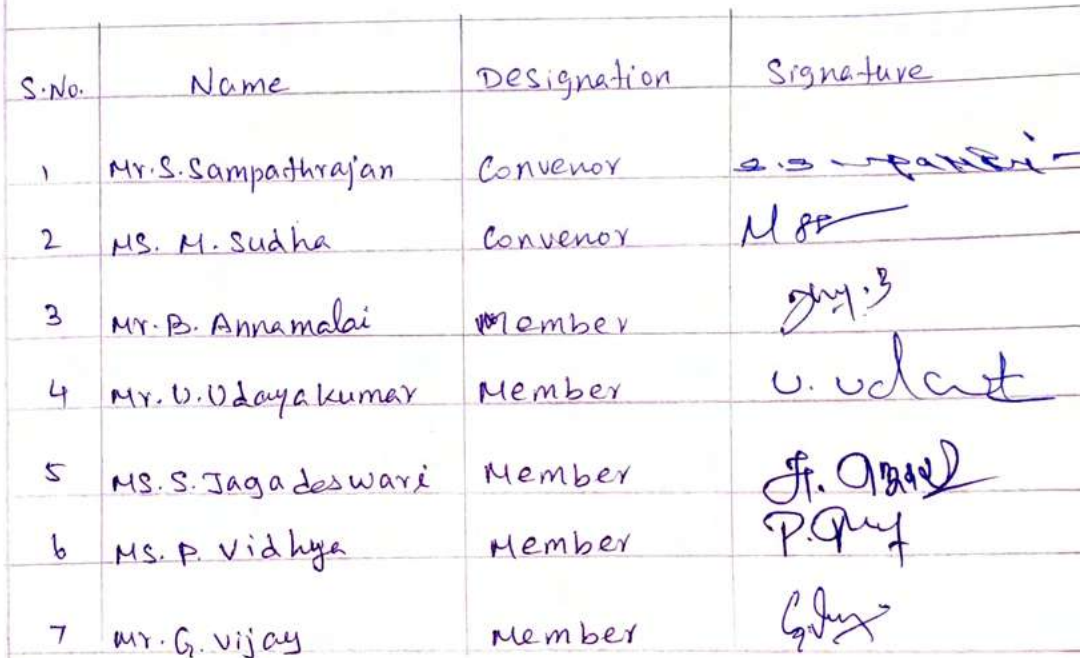 S.No. Name Designation Signature
1 Mr.S.Sampathrajan Convenor
2 MS. M. Sudha Convenor M
3 Mr.B. Annamalai Member
4 Mr.U.Udayakumar Member U.
5 MS.S.Jagadeswari Member
6 MS.P.Vidhya Member P.
7 Mr.G.Vijay Member